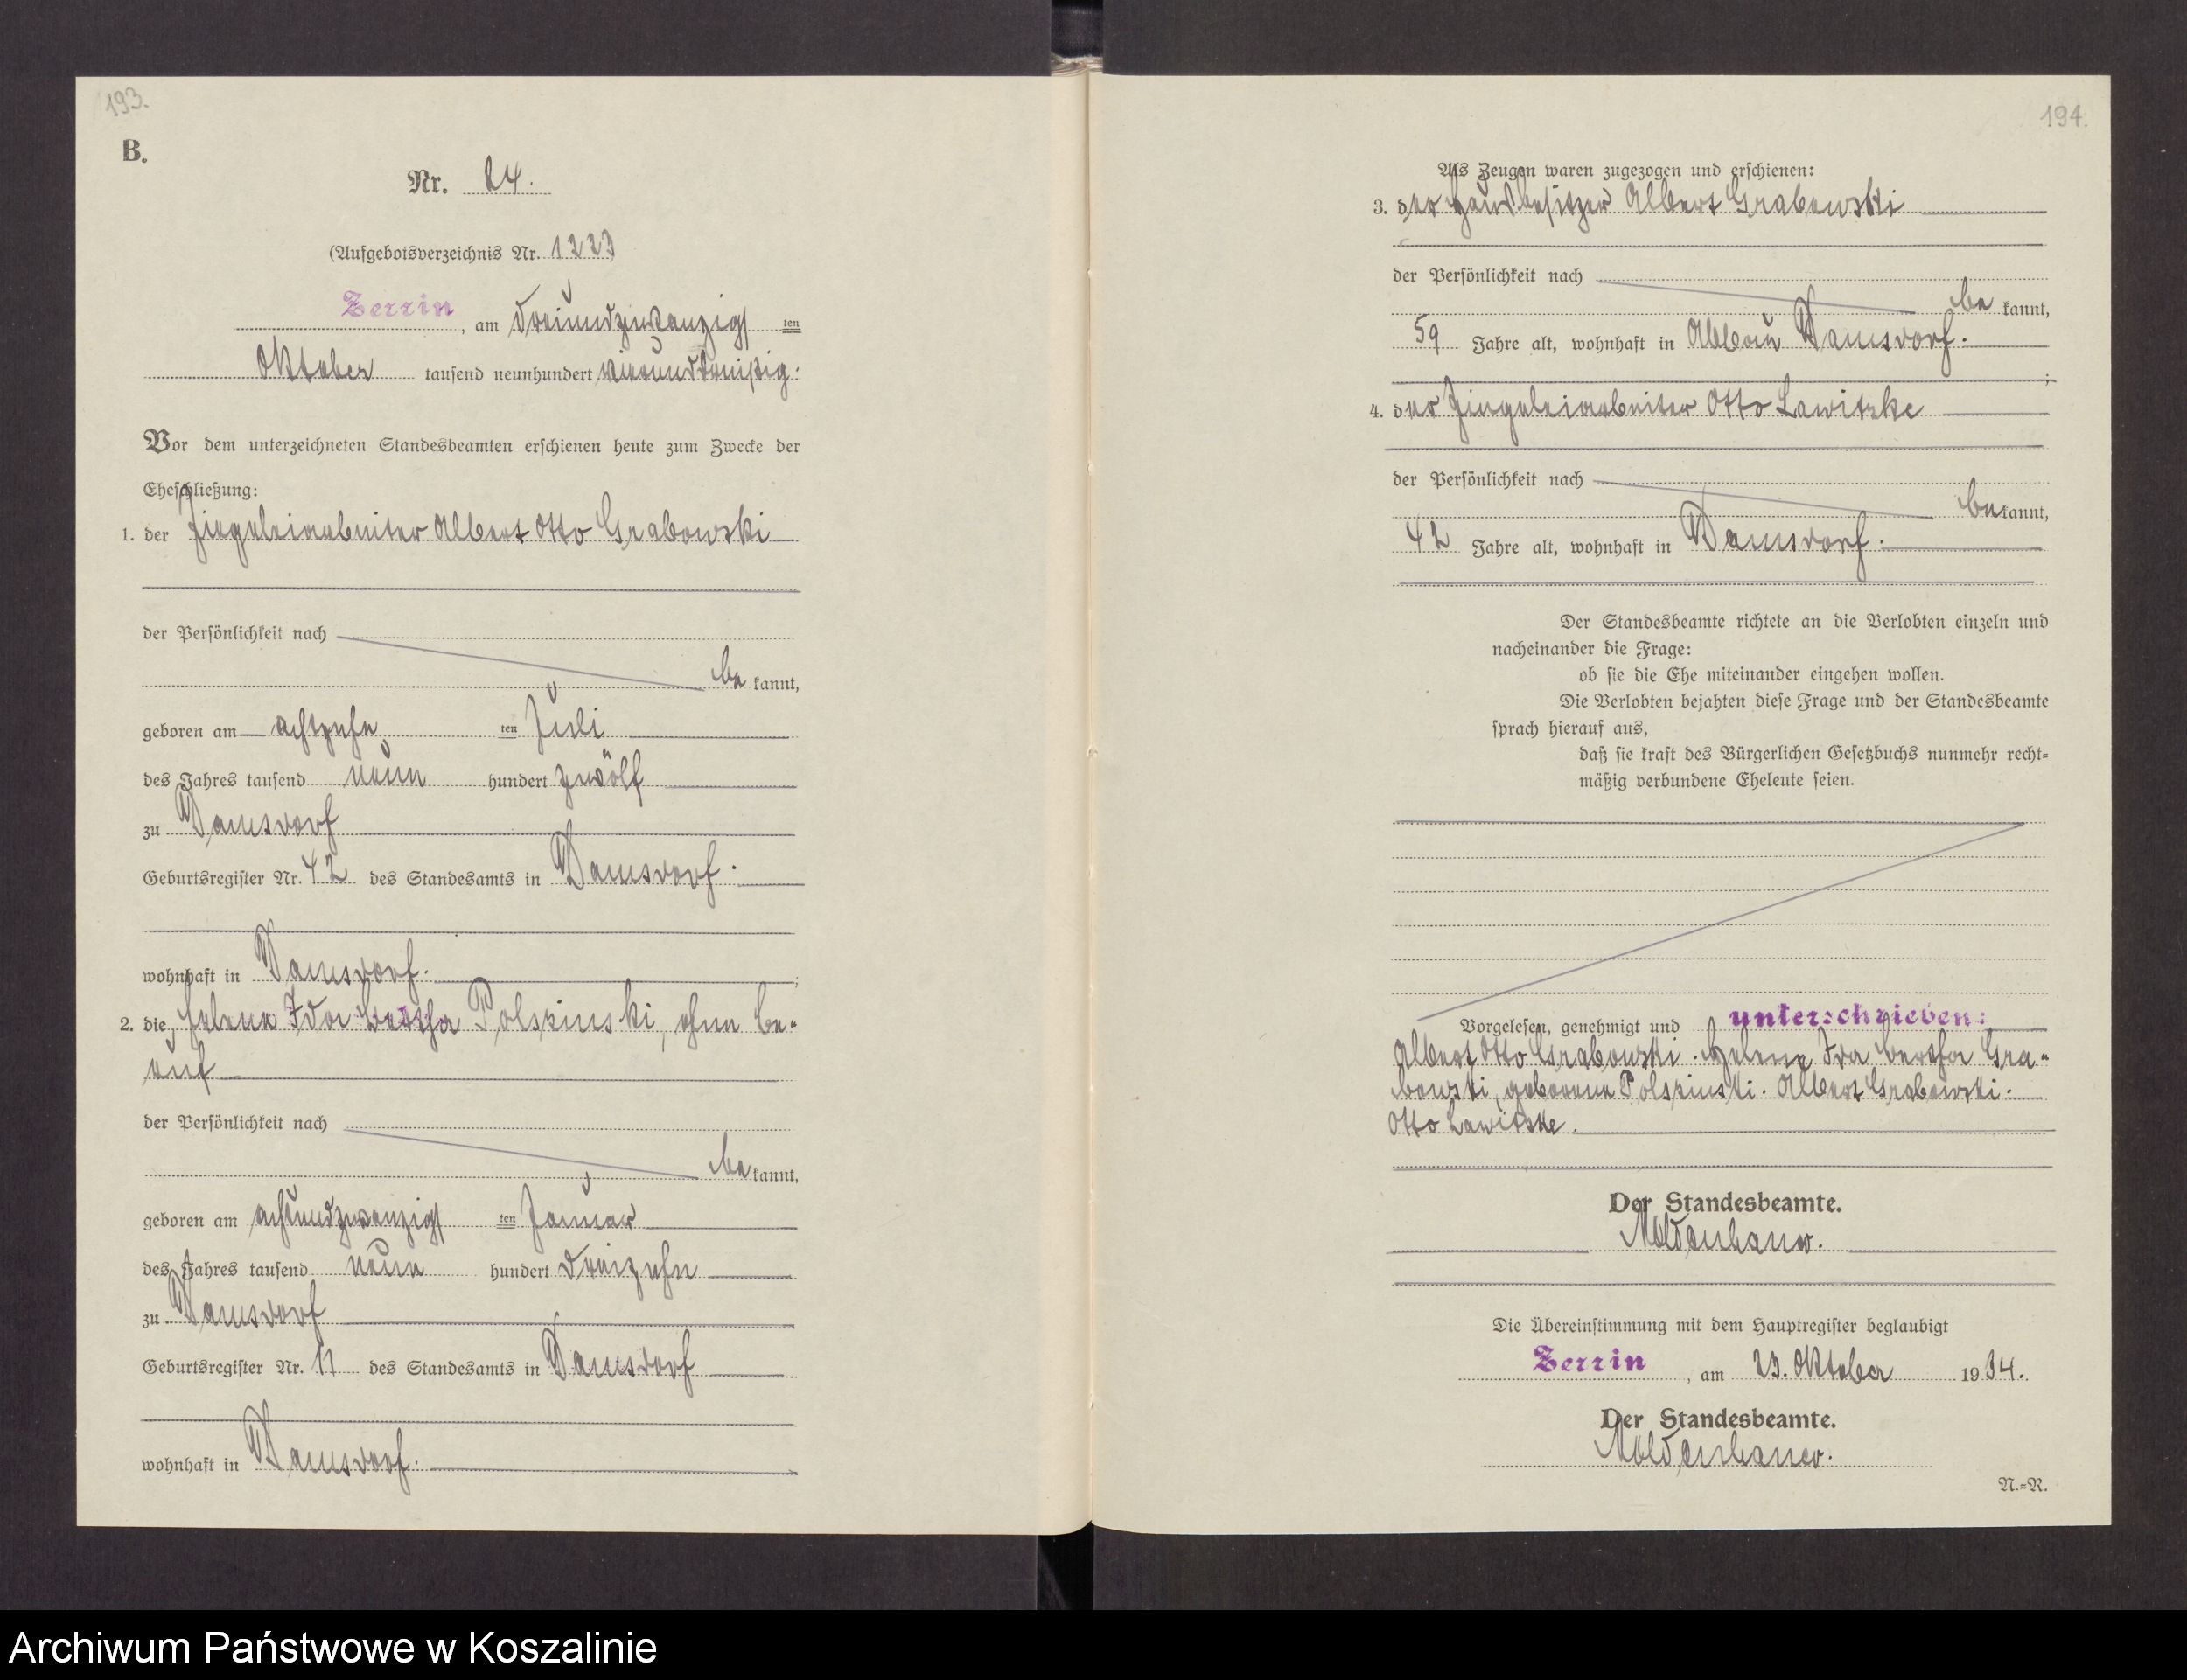 193.
B.
Nr. 24.
(Aufgebotsverzeichnis Nr. 1223)
Zerrin, am dreiundzwanzigsten
Oktober tausend neunhundert vierunddreißig.
Vor dem unterzeichneten Standesbeamten erschienen heute zum Zwecke der
Eheschließung:
1. der Ziegeleiarbeiter Albert Otto Grabowski
der Persönlichkeit nach
be kannt,
geboren am achtzehn ten Juli
des Jahres tausend neun hundert zwölf
zu Damsdorf
Geburtsregister Nr. 42 des Standesamts in Damsdorf.
wohnhaft in Damsdorf. ;
2. die Helene Ida Bertha Polszinski, ohne Be-
ruf
der Persönlichkeit nach
be kannt,
geboren am achtundzwanzigs ten Januar
des Jahres tausend neun hundert dreizehn
zu Damsdorf
Geburtsregister Nr. 11 des Standesamts in Damsdorf
wohnhaft in Damsdorf.
194.
Als Zeugen waren zugezogen und erschienen:
3. der Hausbesitzer Albert Grabowski
der Persönlichkeit nach
be kannt,
59 Jahre alt, wohnhaft in Abbau Damsdorf.
;
4. der Ziegeleiarbeiter Otto Lawitzke
der Persönlichkeit nach
be kannt,
42 Jahre alt, wohnhaft in Damsdorf.
Der Standesbeamte richtete an die Verlobten einzeln und
nacheinander die Frage:
ob sie die Ehe miteinander eingehen wollen.
Die Verlobten bejahten diese Frage und der Standesbeamte
sprach hierauf aus,
daß sie kraft des Bürgerlichen Gesetzbuchs nunmehr recht-
mäßig verbundene Eheleute seien.
Vorgelesen, genehmigt und unterschrieben:
Albert Otto Grabowski. Helene Ida Bertha Gra-
bowski, geborene Polszinski. Albert Grabowski.
Otto Lawitzke.
Der Standesbeamte.
Moldenhauer.
Die Übereinstimmung mit dem Hauptregister beglaubigt
Zerrin, am 23. Oktober 1934.
Der Standesbeamte.
Moldenhauer.
N.-R.
Archiwum Państwowe w Koszalinie